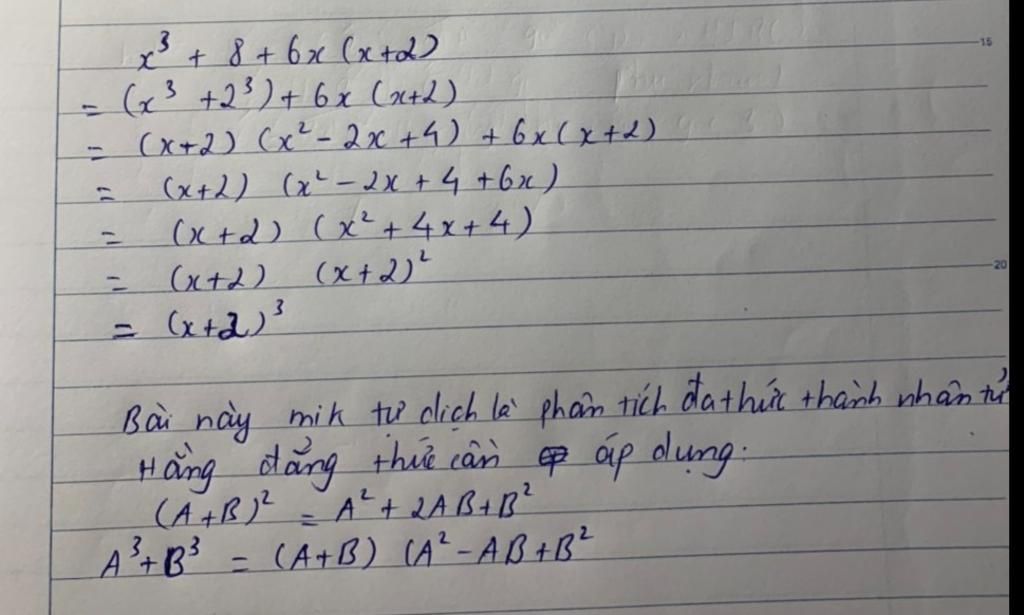 x³ + 8 + 6x (x+2)
15
= (x³ + 2³) + 6x (x+2)
= (x+2) (x² - 2x + 4) + 6x (x+2)
= (x+2) (x² - 2x + 4 + 6x)
= (x+2) (x² + 4x + 4)
= (x+2) (x+2)²
20
= (x+2)³
Bài này mik tự dịch là phân tích đa thức thành nhân tử
Hằng đẳng thức cần áp dụng:
(A+B)² = A² + 2AB + B²
A³+B³ = (A+B) (A² - AB + B²